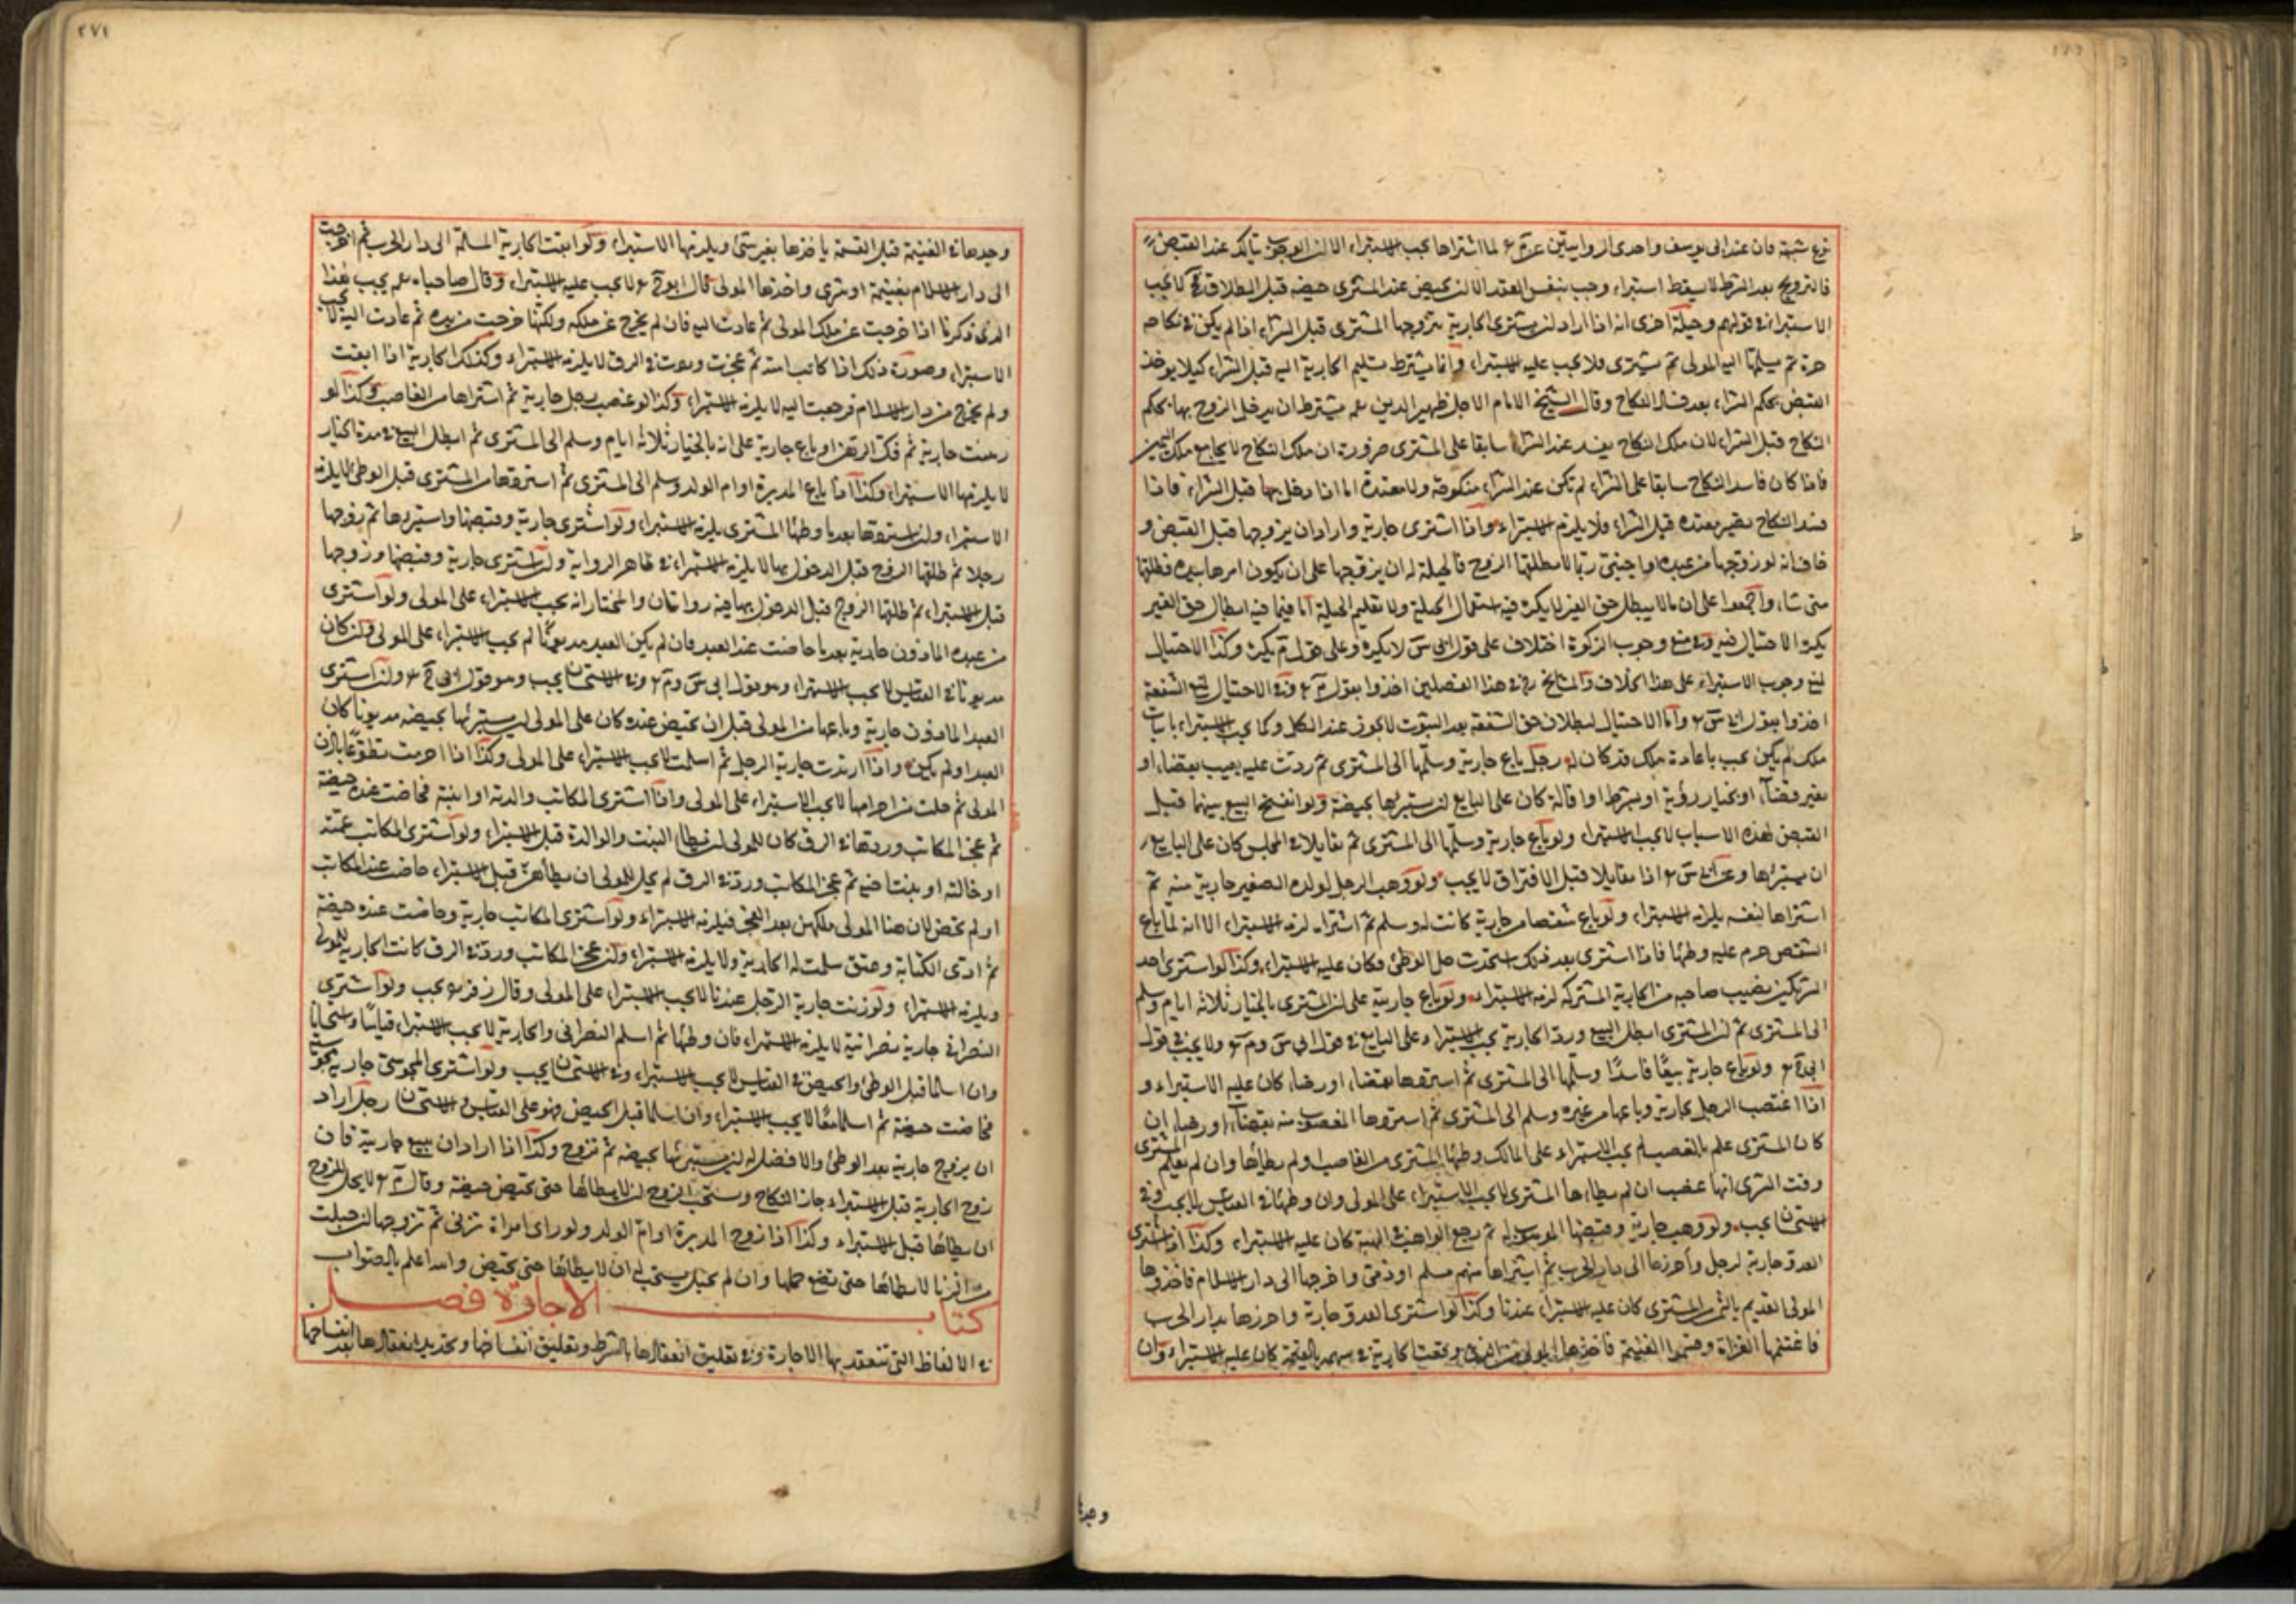 نوع شبهة فان عند ابى يوسف واحدى الروايتين عن م لما اشتراها يجب الاستبراء الا ان الوجوب يتأكد عند القبض
فالتزويج بعد الشرط لا يسقط استبراء وجب بنفس العقد الا ان تحيض عند المشترى حيضة قبل الطلاق لا يجب
الاستبراء فى قولهم وحيلة اخرى انه اذا اراد ان يشترى الجارية يتزوجها المشترى قبل الشراء اذا لم يكن فى نكاحه
حرة ثم يسلمها اليه المولى ثم يشترى فلا يجب عليه الاستبراء وانما يشترط تسليم الجارية اليه قبل الشراء كيلا يوخذ
القبض بحكم الشراء بعد فساد النكاح وقال الشيخ الامام الاجل ظهير الدين يشترط ان يدخل الزوج بها بحكم
النكاح قبل الشراء لان ملك النكاح يفسد عند الشراء سابقا على المشترى ضرورة ان ملك النكاح لا يجامع ملك اليمين
فاذا كان فاسد النكاح سابقا على الشراء لم تكن عند الشراء منكوحة ولا معتدة اما اذا دخل بها قبل الشراء فاذا
فسد النكاح تصير معتدة قبل الشراء فلا يلزم الاستبراء واذا اشترى جارية واراد ان يزوجها قبل القبض و
خاف انه لو زوجها من عبده او اجنبى ربما لا يطلقها الزوج فالحيلة له ان يزوجها على ان يكون امرها بيده فطلقها
متى شاء واجمعوا على ان ما لا يبطل حق الغير لا يكره فيه استعمال الحيلة ولا تعليم الحيلة اما فيما فيه ابطال حق الغير
يكره الاحتيال فيه وفى منع وجوب الزكوة اختلاف على قول ابى س لا يكره وعلى قول م يكره وكذا الاحتيال
لمنع وجوب الاستبراء على هذا الخلاف والمشايخ فى هذا الفصلين اخذوا بقول م وفى الاحتيال لمنع الشفعة
اخذوا بقول ابى س واما الاحتيال لبطلان حق الشفعة بعد الثبوت لا يجوز عند الكل وكما يجب الاستبراء باثبات
ملك لم يكن يجب باعادة ملك قد كان له رجل باع جارية وسلمها الى المشترى ثم ردت عليه بعيب بقضاء او
بغير قضاء او بخيار رؤية او بشرط او اقالة كان على البايع ان يستبرئها بحيضة ولو انفسخ البيع بينهما قبل
القبض لهذه الاسباب لا يجب الاستبراء ولو باع جارية وسلمها الى المشترى ثم تقايلا فى المجلس كان على البايع
ان يستبرئها وعن ابى س اذا تقايلا قبل الافتراق لا يجب ولو وهب الرجل لولده الصغير جارية منه ثم
اشتراها لنفسه يلزمه الاستبراء ولو باع شقصا من جارية كانت له وسلم ثم اشتراه لزمه الاستبراء الا انه لما باع
الشقص حرم عليه وطئها فاذا اشترى بعد ذلك استحدث حل الوطئ فكان عليه الاستبراء وكذا لو اشترى احد
الشريكين نصيب صاحبه من الجارية المشتركة لزمه الاستبراء ولو باع جارية على ان المشترى بالخيار ثلاثة ايام وسلم
الى المشترى ثم ان المشترى ابطل البيع ورد الجارية يجب الاستبراء على البايع فى قول ابى س وم ولا يجب فى قول
ابى ح ولو باع جارية بيعا فاسدا وسلمها الى المشترى ثم استردها بقضاء او رضاء كان عليه الاستبراء و
اذا اغتصب الرجل جارية وباعها من غيره وسلم الى المشترى ثم استردها المغصوب منه بقضاء او رضاء ان
كان المشترى علم بالغصب لم يجب الاستبراء على المالك وطئها المشترى من الغاصب او لم يطأها وان لم يعلم المشترى
وقت الشرى انها غصب ان لم يطأها المشترى لا يجب الاستبراء على المولى وان وطئها فى القياس لا يجب وفى
الاستحسان يجب ولو وهب جارية وقبضها الموهوب له ثم رجع الواهب فى الهبة كان عليه الاستبراء وكذا اذا اشترى
العدو جارية لرجل واحرزها الى دار الحرب ثم اشتراها منهم مسلم او ذمى واخرجها الى دار الاسلام فاخذها
المولى القديم بالثمن من المشترى كان عليه الاستبراء عندنا وكذا لو اشترى العدو جارية واحرزها بدار الحرب
فاغتنمها الغزاة وقسموا الغنيمة فاخذها المولى من الذى وقعت الجارية فى سهمه بالقيمة كان عليه الاستبراء وان
وجدها
٢٧١
وجدها فى الغنيمة قبل القسمة ياخذها بغير شئ ويلزمها الاستبراء ولو ابقت الجارية المسلمة الى دار الحرب ثم اخرجت
الى دار الاسلام بغنيمة او شرى واخذها المولى قال ابو ح لا يجب عليه الاستبراء وقال صاحباه يجب هذا
الذى ذكرنا اذا خرجت عن ملك المولى ثم عادت اليه فان لم يخرج عن ملكه ولكنها خرجت من يده ثم عادت اليه لا يجب
الاستبراء وصورة ذلك اذا كاتب امته ثم عجزت وردت فى الرق لا يلزمه الاستبراء وكذلك الجارية اذا ابقت
ولم يخرج من دار الاسلام فرجعت اليه لا يلزمه الاستبراء وكذا لو غصب رجل جارية ثم اشتراها من الغاصب وكذا لو
رهنت جارية ثم فك الرهن او باع جارية على انه بالخيار ثلاثة ايام وسلم الى المشترى ثم ابطل البيع فى مدة الخيار
لا يلزمها الاستبراء وكذا اذا باع المدبرة او ام الولد وسلم الى المشترى ثم استردها من المشترى قبل الوطئ لا يلزمه
الاستبراء وان استردها بعد ما وطئها المشترى يلزمه الاستبراء ولو اشترى جارية وقبضها واستبرأها ثم زوجها
رجلا ثم طلقها الزوج قبل الدخول بها لا يلزمه الاستبراء فى ظاهر الرواية وان اشترى جارية وقبضها وزوجها
قبل الاستبراء ثم طلقها الزوج قبل الدخول بها فيه روايتان والمختار انه يجب الاستبراء على المولى ولو اشترى
من عبده الماذون جارية بعد ما حاضت عند العبد فان لم يكن العبد مديونا لم يجب الاستبراء على المولى وان كان
مديونا فى القياس لا يجب الاستبراء وهو قول ابى س وم وفى الاستحسان يجب وهو قول ابى ح وان اشترى
العبد الماذون جارية وباعها من المولى قبل ان تحيض عنده كان على المولى ان يستبرئها بحيضة مديونا كان
العبد او لم يكن واذا ارتدت جارية الرجل ثم اسلمت لا يجب الاستبراء على المولى وكذا اذا احرمت تطوعا باذن
المولى ثم حلت من احرامها لا يجب الاستبراء على المولى واذا اشترى المكاتب والدته او ابنته فحاضت عنده حيضة
ثم عجز المكاتب وردها فى الرق كان للمولى ان يطأ البنت والوالدة قبل الاستبراء ولو اشترى المكاتب عمته
او خالته او بنت اخيه ثم عجز المكاتب ورد فى الرق لم يحل للمولى ان يطأهن قبل الاستبراء حاضت عند المكاتب
او لم تحض لان هنا المولى ملكهن بعد العجز فيلزمه الاستبراء ولو اشترى المكاتب جارية وحاضت عنده حيضة
ثم ادى الكتابة وعتق سلمت له الجارية ولا يلزمه الاستبراء وان عجز المكاتب ورد فى الرق كانت الجارية للمولى
ويلزمه الاستبراء ولو زنت جارية الرجل عندنا لا يجب الاستبراء على المولى وقال زفر يجب ولو اشترى
النصرانى جارية نصرانية لا يلزمه الاستبراء فان وطئها ثم اسلم النصرانى والجارية لا يجب الاستبراء قياسا واستحسانا
وان اسلما قبل الوطئ والحيض فى القياس لا يجب الاستبراء وفى الاستحسان يجب ولو اشترى المجوسى جارية مجوسية
فحاضت حيضة ثم اسلما معا لا يجب الاستبراء وان اسلما قبل الحيض فهو على القياس والاستحسان رجل اراد
ان يزوج جارية بعد الوطئ والافضل له ان يستبرئها بحيضة ثم تزوج وكذا اذا اراد ان يبيع جارية فان
زوج الجارية قبل الاستبراء جاز النكاح ويستحب للزوج ان لا يطأها حتى تحيض حيضة وقال م لا يحل للزوج
ان يطأها قبل الاستبراء وكذا اذا زوج المدبرة او ام الولد ولو راى امراة تزنى ثم تزوجها ان حبلت
من الزنا لا يطأها حتى تضع حملها وان لم تحبل يستحب له ان لا يطأها حتى تحيض والله اعلم بالصواب
كتاب الاجارة فصل
فى الالفاظ التى تنعقد بها الاجارة وفى تعليق انعقادها بالشرط وتعليق انفساخها وتجديد انعقادها بعد انفساخها